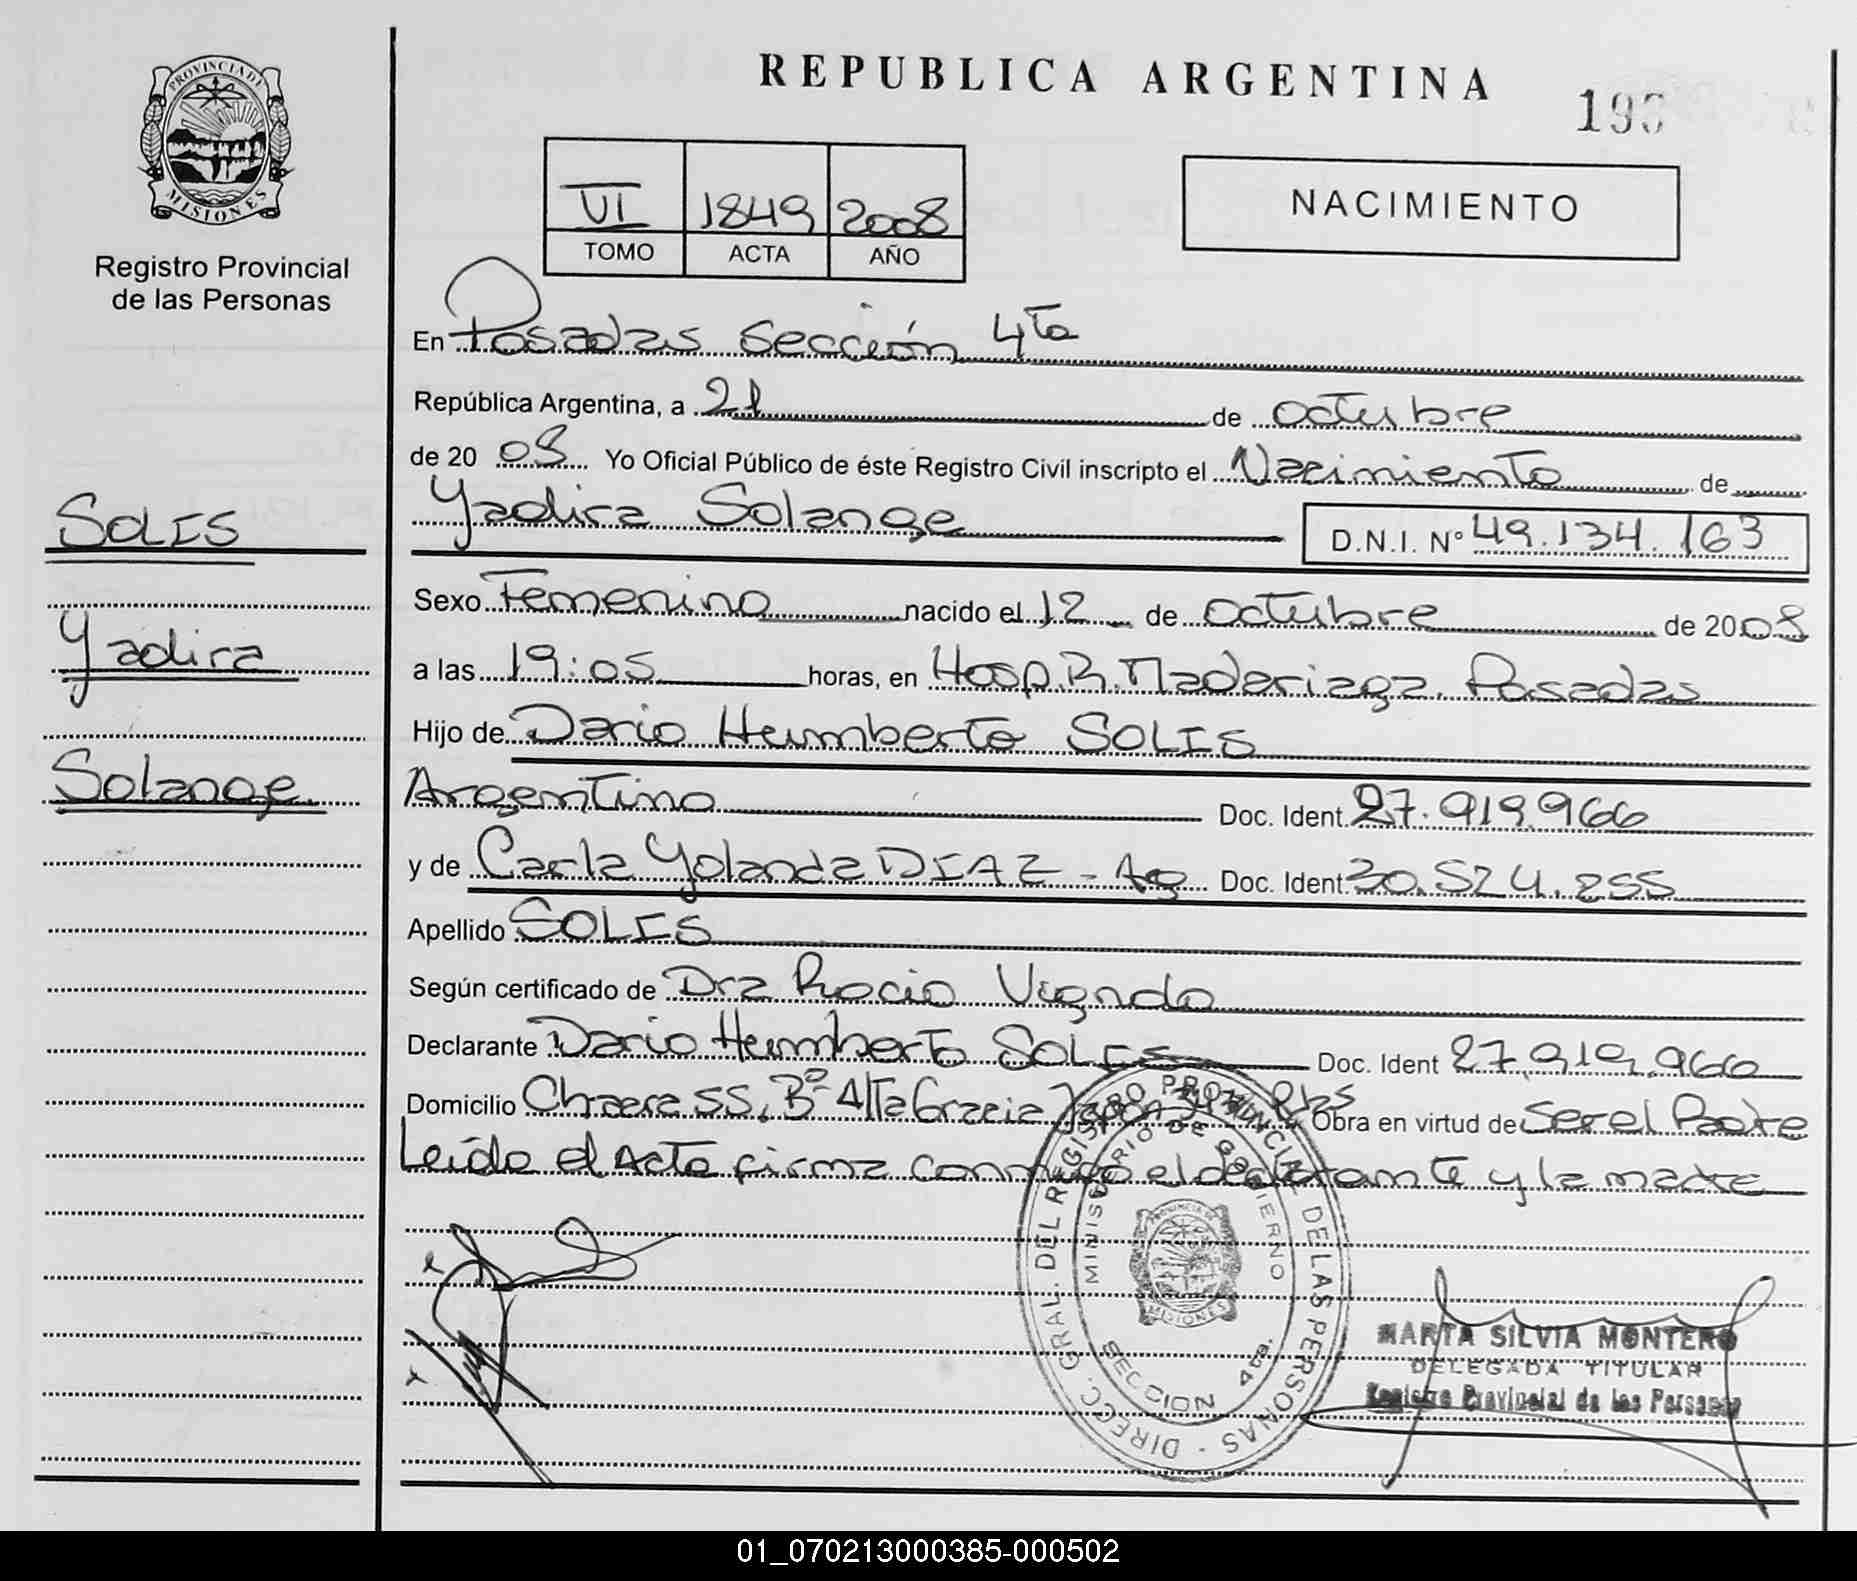 REPUBLICA ARGENTINA
PROVINCIA DE
MISIONES
Registro Provincial
de las Personas
VI 1849 2008
TOMO ACTA AÑO
NACIMIENTO
En Posadas Sección 4ta
República Argentina, a 21 de octubre
de 20 08 Yo Oficial Público de éste Registro Civil inscripto el Nacimiento de
Yadira Solange D.N.I. N° 49.134.163
SOLIS
Yadira
Solange
Sexo Femenino nacido el 12 de octubre de 2008
a las 19:05 horas, en Hosp. R. Madariaga. Posadas
Hijo de Dario Humberto SOLIS
Argentino Doc. Ident. 27.919.966
y de Carla Yolanda DIAZ - Ag Doc. Ident. 30.524.255
Apellido SOLIS
Según certificado de Dra Rocio
Declarante Dario Humberto SOLIS Doc. Ident 27.919.966
Domicilio Chacra 55, Bº Alta Gracia Obra en virtud de Ser el Padre
Leída el Acta firma conmigo el declarante y la madre
DIRECC. GRAL. DEL REGISTRO PROVINCIAL DE LAS PERSONAS -
MINISTERIO DE GOBIERNO
PROVINCIA DE
MISIONES
SECCION 4ta.
MARTA SILVIA MONTERO
DELEGADA TITULAR
Registro Provincial de las Personas
01_070213000385-000502